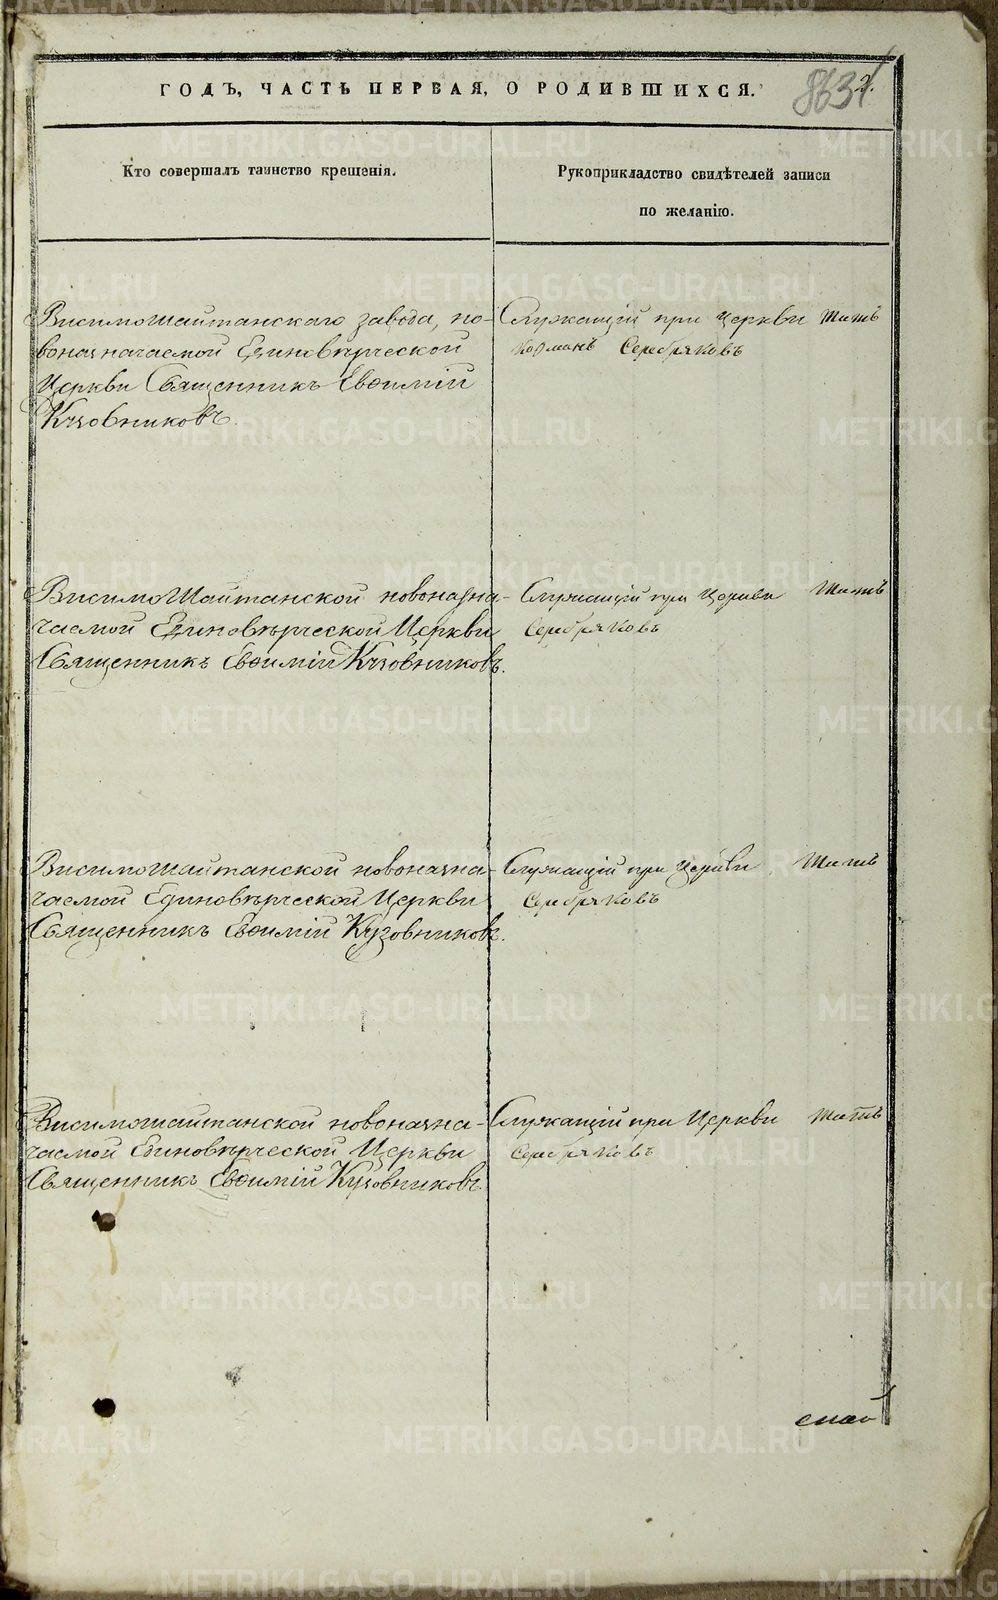 ГОДЪ, ЧАСТЬ ПЕРВАЯ, О РОДИВШИХСЯ.
863
2.
Кто совершалъ таинство крещенія.
Рукоприкладство свидѣтелей записи
по желанію.
Висимошайтанскаго завода, но-
воназначаемой Единовѣрческой
Церкви Священникъ Евѳимій
Кузовниковъ.
Служащій при Церкви
Серебряковъ
ВисимоШайтанской новоназна-
чаемой Единовѣрческой Церкви
Священникъ Евѳимій Кузовниковъ.
Служащій при Церкви
Серебряковъ
Висимошайтанской новоназна-
чаемой Единовѣрческой Церкви
Священникъ Евѳимій Кузовниковъ.
Служащій при Церкви
Серебряковъ
Висимошайтанской новоназна-
чаемой Единовѣрческой Церкви
Священникъ Евѳимій Кузовниковъ
Служащій при Церкви
Серебряковъ
METRIKI.GASO-URAL.RU